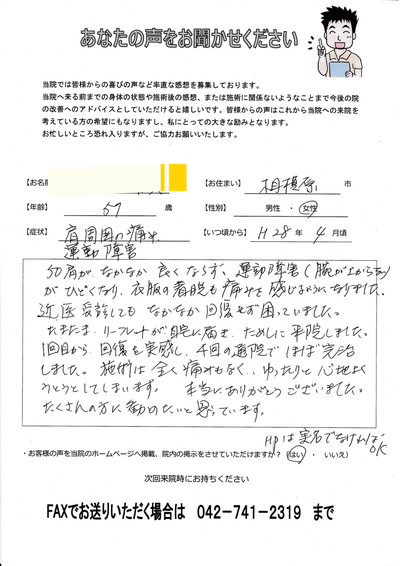 あなたの声をお聞かせください
当院では皆様からの喜びの声など率直な感想を募集しております。
当院へ来る前までの身体の状態や施術後の感想、または施術に関係ないようなことまで今後の院
の改善へのアドバイスとしていただけると嬉しいです。皆様からの声はこれから当院への来院を
考えている方の希望にもなりますし、私にとっての大きな励みとなります。
お忙しいところ恐れ入りますが、ご協力お願いいたします。
【お名前
【お住まい】 相模原 市
【年齢】 57 歳 【性別】 男性 ・ 女性
【症状】 肩周囲の痛み 【いつ頃から】 H28年 4月頃
運動障害
50肩がなかなか良くならず、運動障害(腕が上がらない)
がひどくなり、衣服の着脱も痛みを感じるようになりました。
近医受診してもなかなか回復せず困っていました。
たまたまリーフレットが自宅に届き、ためしに来院しました。
1回目から回復を実感し、4回の通院でほぼ完治
しました。施術は全く痛みもなく、ゆったりと心地よく
うとうとしてしまいます。 本当にありがとうございました。
たくさんの方に勧めたいと思っています。
HPは実名でなければOK
・お客様の声を当院のホームページへ掲載、院内の掲示をさせていただけますか?( はい ・ いいえ)
次回来院時にお持ちください
FAXでお送りいただく場合は 042-741-2319 まで